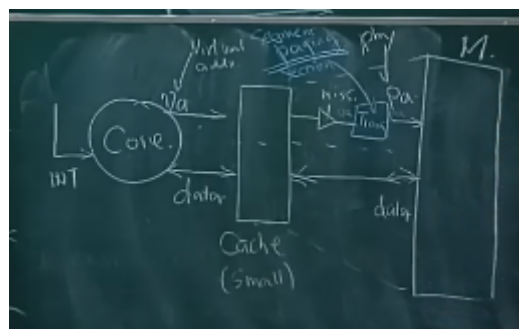 Virtual
addr.
Segment
paging
phy
M.
Va
miss.
Trans
Pa.
Core.
INT
data
data
Cache
(Small)